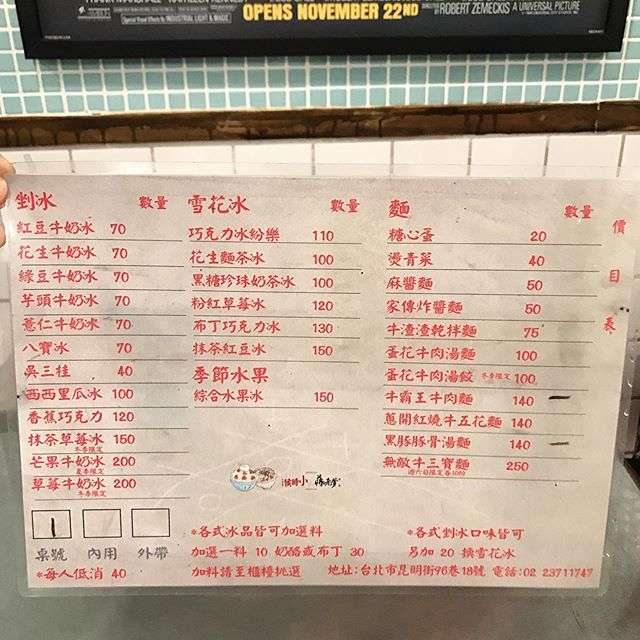 OPENS NOVEMBER 22ND
ROBERT ZEMECKIS
A UNIVERSAL PICTURE
INDUSTRIAL LIGHT & MAGIC
價目表
剉冰 數量
紅豆牛奶冰 70
花生牛奶冰 70
綠豆牛奶冰 70
芋頭牛奶冰 70
薏仁牛奶冰 70
八寶冰 70
吳三桂 40
西西里瓜冰 100
香蕉巧克力 120
抹茶草莓冰 150
冬季限定
芒果牛奶冰 200
夏季限定
草莓牛奶冰 200
冬季限定
雪花冰 數量
巧克力冰紛樂 110
花生麵茶冰 100
黑糖珍珠奶茶冰 100
粉紅草莓冰 120
布丁巧克力冰 130
抹茶紅豆冰 150
季節水果
綜合水果冰 150
麵 數量
糖心蛋 20
燙青菜 40
麻醬麵 50
家傳炸醬麵 50
牛渣渣乾拌麵 75
蛋花牛肉湯麵 100
蛋花牛肉湯餃 冬季限定 100
牛霸王牛肉麵 140
蔥開紅燒牛五花麵 140
黑豚豚骨湯麵 140
無敵牛三寶麵 250
1
桌號 內用 外帶
*每人低消 40
*各式冰品皆可加選料
加選一料 10 奶酪或布丁 30
加料請至櫃檯挑選
*各式剉冰口味皆可
另加 20 換雪花冰
地址:台北市昆明街96巷18號 電話:02 23711747